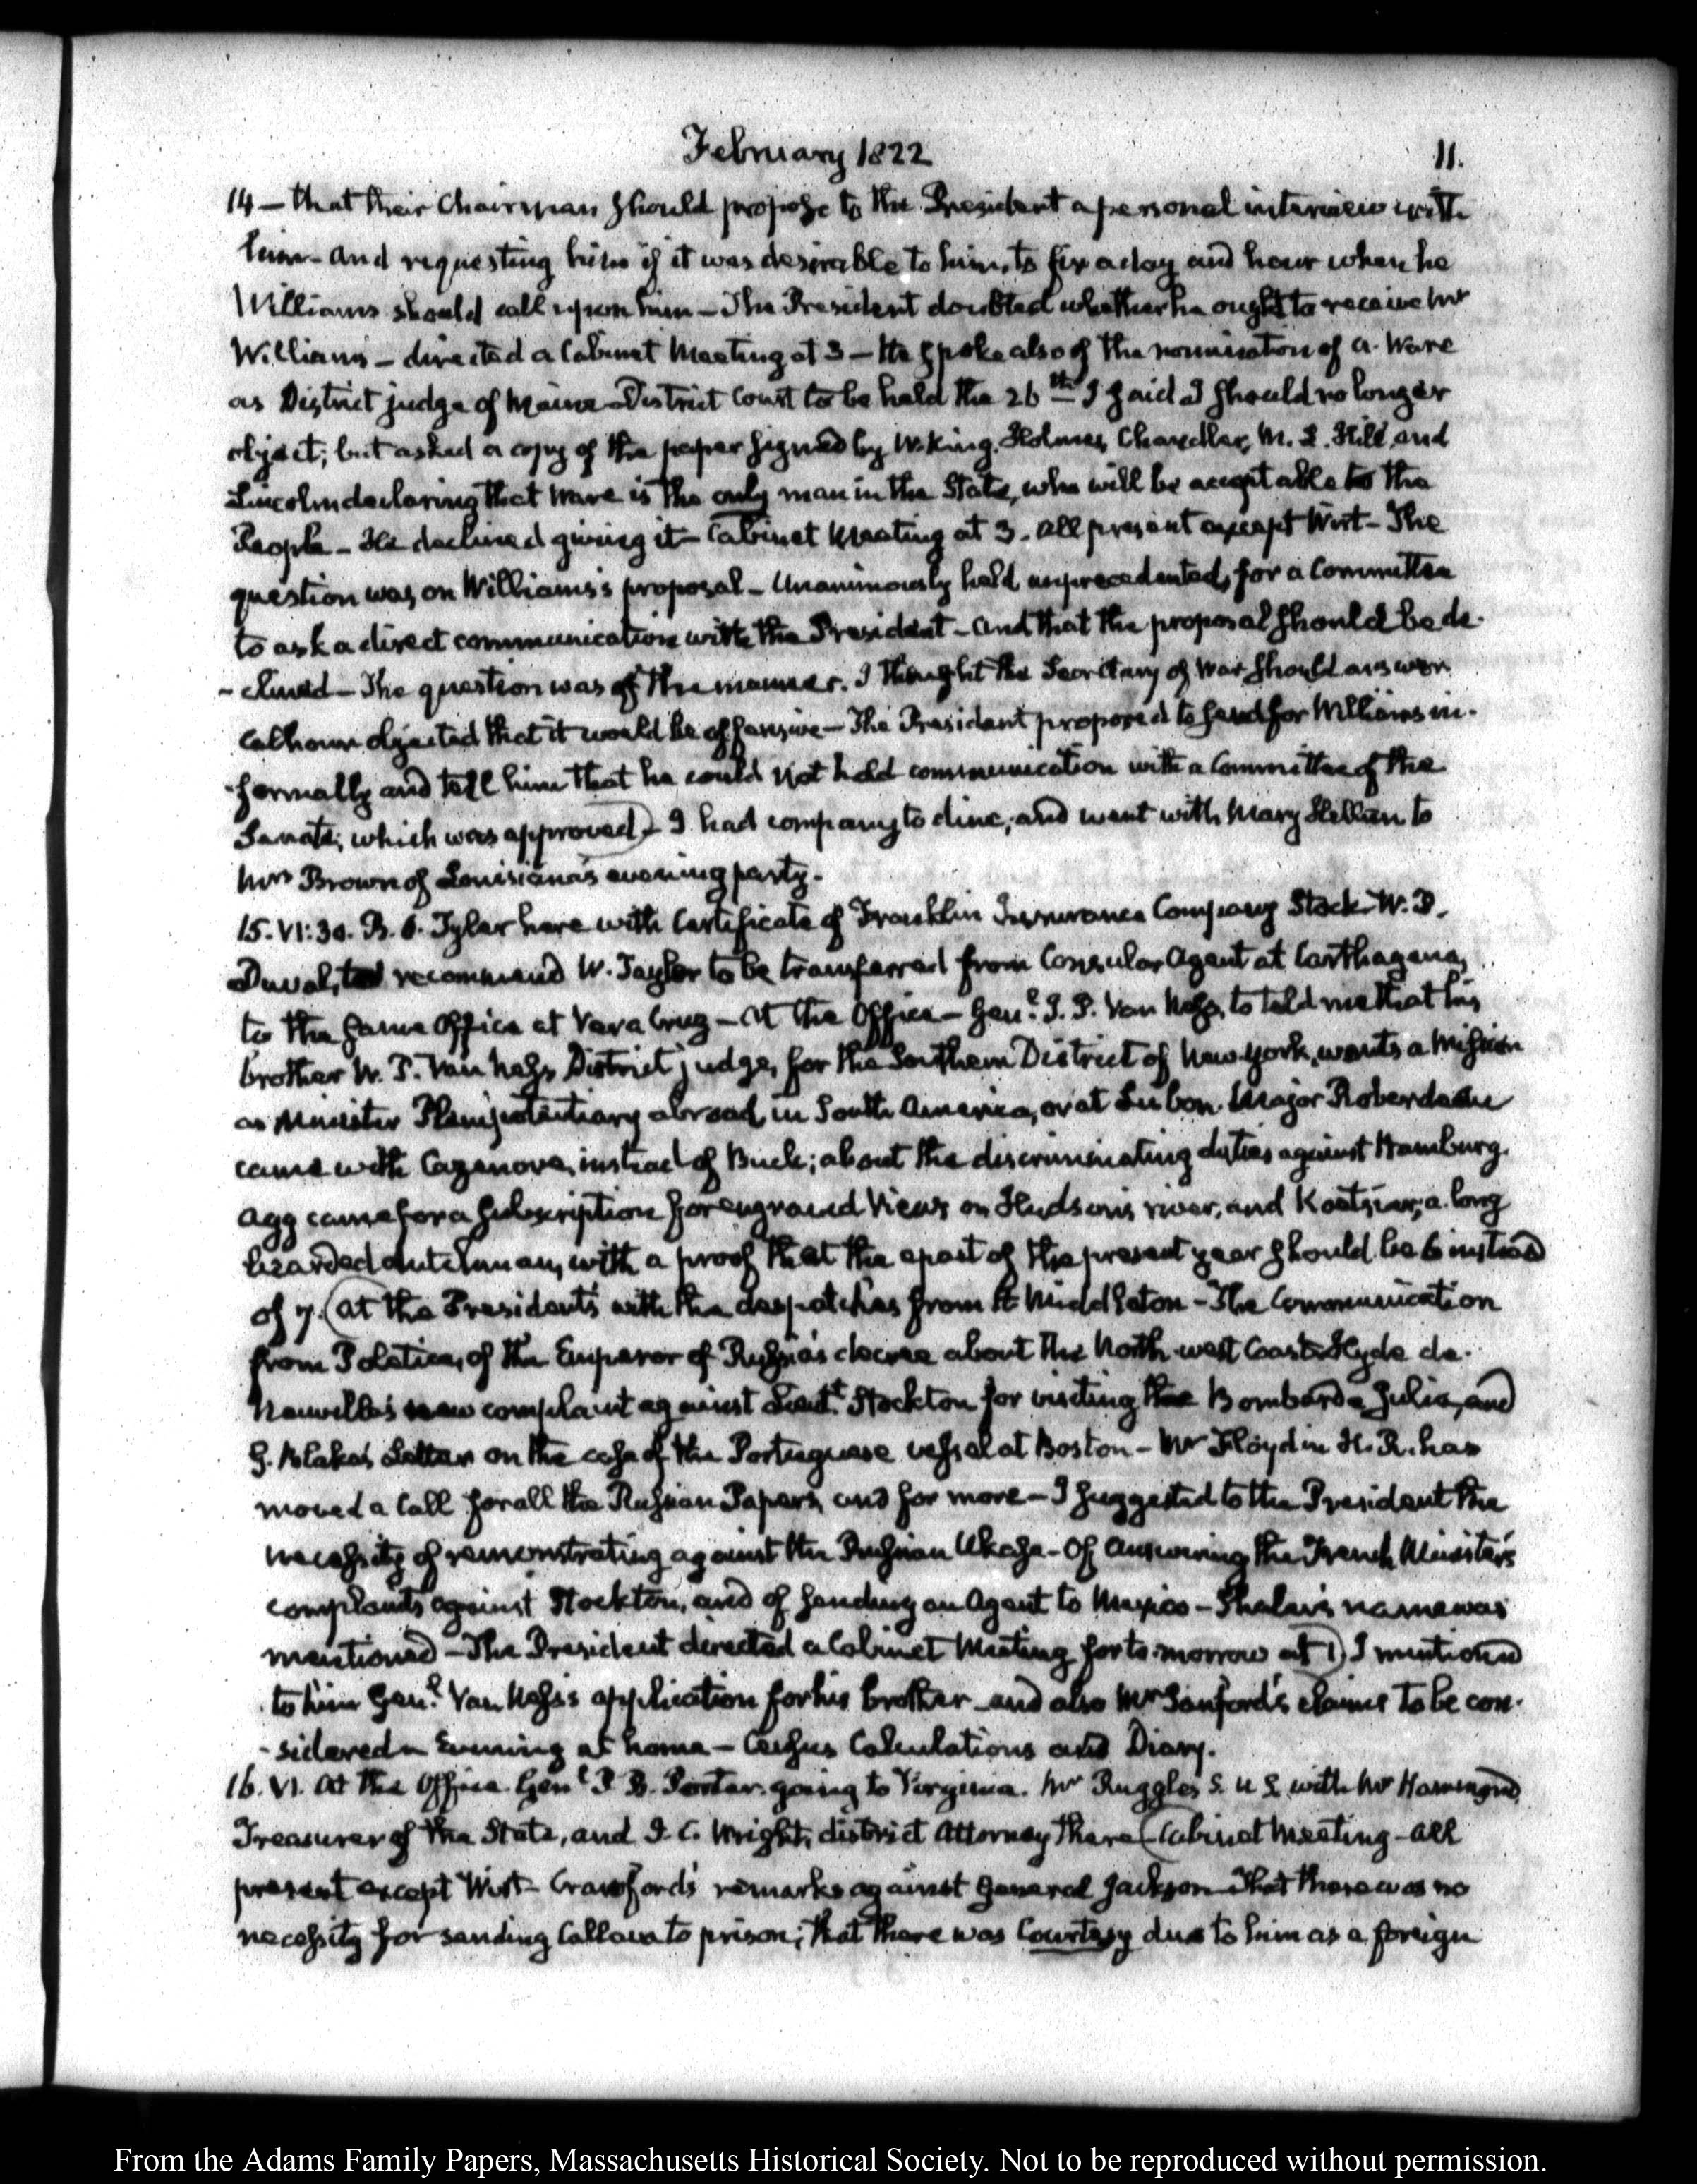 February 1822
11.
14 — that their Chairman should propose to the President a personal interview with
him — and requesting him if it was desirable to him, to fix a day and hour when he
Williams should call upon him — The President doubted whether he ought to receive Mr
Williams — directed a Cabinet Meeting at 3 — He spoke also of the nomination of A. Ware
as District judge of Maine — District Court to be held the 26th — I said I should no longer
object; but asked a copy of the paper signed by W. King, Holmes, Chandler, M. L. Hill and
Lincoln declaring that Ware is the only man in the State, who will be acceptable to the
People — He declined giving it — Cabinet Meeting at 3. All present except Wirt — The
question was on Williams's proposal — Unanimously held unprecedented, for a Committee
to ask a direct communication with the President — and that the proposal should be de-
-clined — The question was of the manner. I thought the Secretary of War should answer
Calhoun objected that it would be offensive — The President proposed to send for Williams in-
-formally and tell him that he could not hold communication with a Committee of the
Senate; which was approved) — I had company to dine, and went with Mary Hellen to
Mrs Brown of Louisiana's evening party.
15. VI:30. B. O. Tyler here with Certificate of Franklin Insurance Company Stock. W. P.
Duval, to recommend W. Taylor to be transferred from Consular Agent at Carthagena,
to the same Office at Vera Cruz — At the Office — Genl. J. P. Van Ness, to told me that his
brother W. P. Van Ness District judge, for the Southern District of New York, wants a Mission
as Minister Plenipotentiary abroad, in South America, or at Lisbon. Major Roberdeau
came with Cazenove, instead of Buck; about the discriminating duties against Hamburg.
Agg came for a subscription for engraved Views on Hudson's river, and a long
bearded dutchman, with a proof that the epact of the present year should be 6 instead
of 7. (At the President's with the despatches from H. Middleton — The Communication
from Poletica, of the Emperor of Russia's decree about the North-west Coast. Hyde de
Neuville's new complaint against Lieutt. Stockton for visiting the Bombarde Julie, and
G. Blake's Letter on the case of the Portuguese vessel at Boston — Mr Floyd in H. R. has
moved a Call for all the Russian Papers, and for more — I suggested to the President the
necessity of remonstrating against the Russian Ukase — Of answering the French Minister's
complaints against Stockton, and of sending an Agent to Mexico — Shaler's name was
mentioned — The President directed a Cabinet Meeting for to-morrow at 1) I mentioned
to him Genl. Van Ness's application for his brother — and also Mr Sanford's claims to be con-
-sidered — Evening at home — Census Calculations and Diary.
16. VI. At the Office. Genl P. B. Porter. going to Virginia. Mr Ruggles S. U S. with Mr
Treasurer of the State, and J. C. Wright, district Attorney there (Cabinet Meeting — All
present except Wirt — Crawford's remarks against General Jackson — That there was no
necessity for sending Callava to prison; that there was Courtesy due to him as a foreign
From the Adams Family Papers, Massachusetts Historical Society. Not to be reproduced without permission.